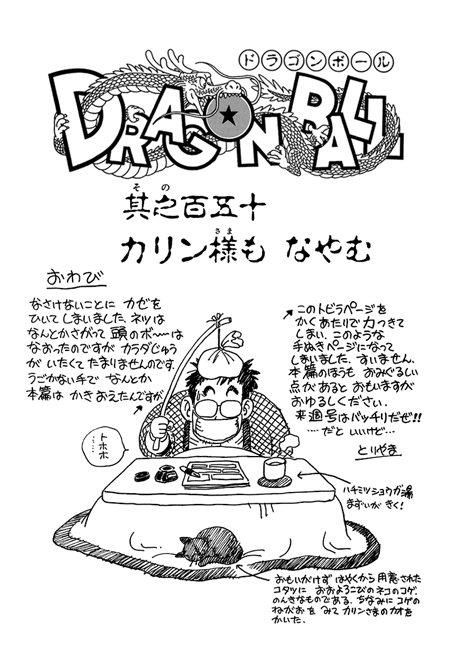 ドラゴンボール
DRAGON BALL
其之百五十
そ の
カリン様も なやむ
さま
おわび
なさけないことに カゼを
ひいてしまいました。ネツは
なんとかさがって 頭のボ〜は
なおったのですが カラダじゅう
が いたくて たまりませんです。
うごかない手で なんとか
本篇は かきおえたんですが
このトビラページを
かくあたりで 力つきて
しまい、このような
手ぬきページになって
しまいました。すいません。
本篇のほうも おみぐるしい
点があると おもいますが
おゆるしください。
来週号はバッチリだぜ!!
‥‥だと いいけど‥‥
とりやま
トホホ
‥‥
ハチミツショウガ湯
まずいが きく!
おもいがけず はやくから 用意された
コタツに おおよろこびの ネコのコゲ。
のんきなものである。ちなみに コゲの
ねがおを みて カリンさまのカオを
かいた。